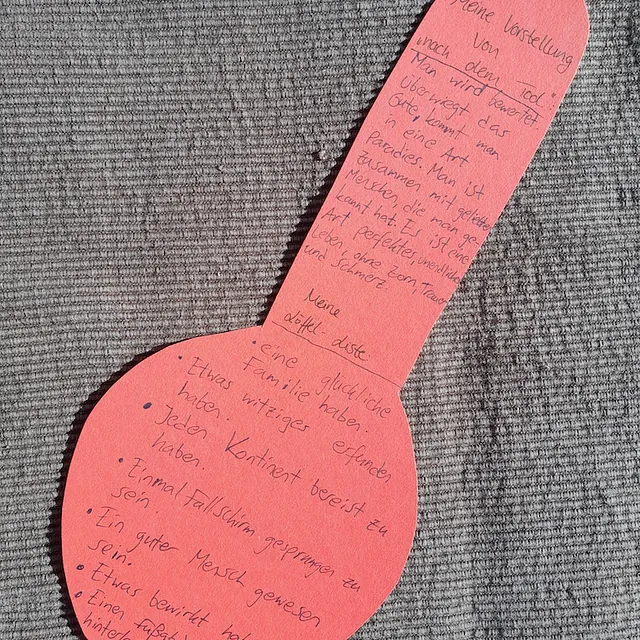 Meine Vorstellung
von
nach dem Tod:
Man wird bewertet
überwiegt das
Gute, kommt man
in eine Art
Paradies. Man ist
zusammen mit geliebten
Menschen, die man ge-
kannt hat. Es ist eine
Art perfektes, unendliches
Leben, ohne Zorn, Trauer
und Schmerz.
Meine
Löffel-Liste:
• eine glückliche
Familie haben.
• Etwas witziges erfunden
haben.
• Jeden Kontinent bereist zu
haben.
• Einmal Fallschirm gesprungen zu
sein.
• Ein guter Mensch gewesen
sein.
• Etwas bewirkt
• Einen